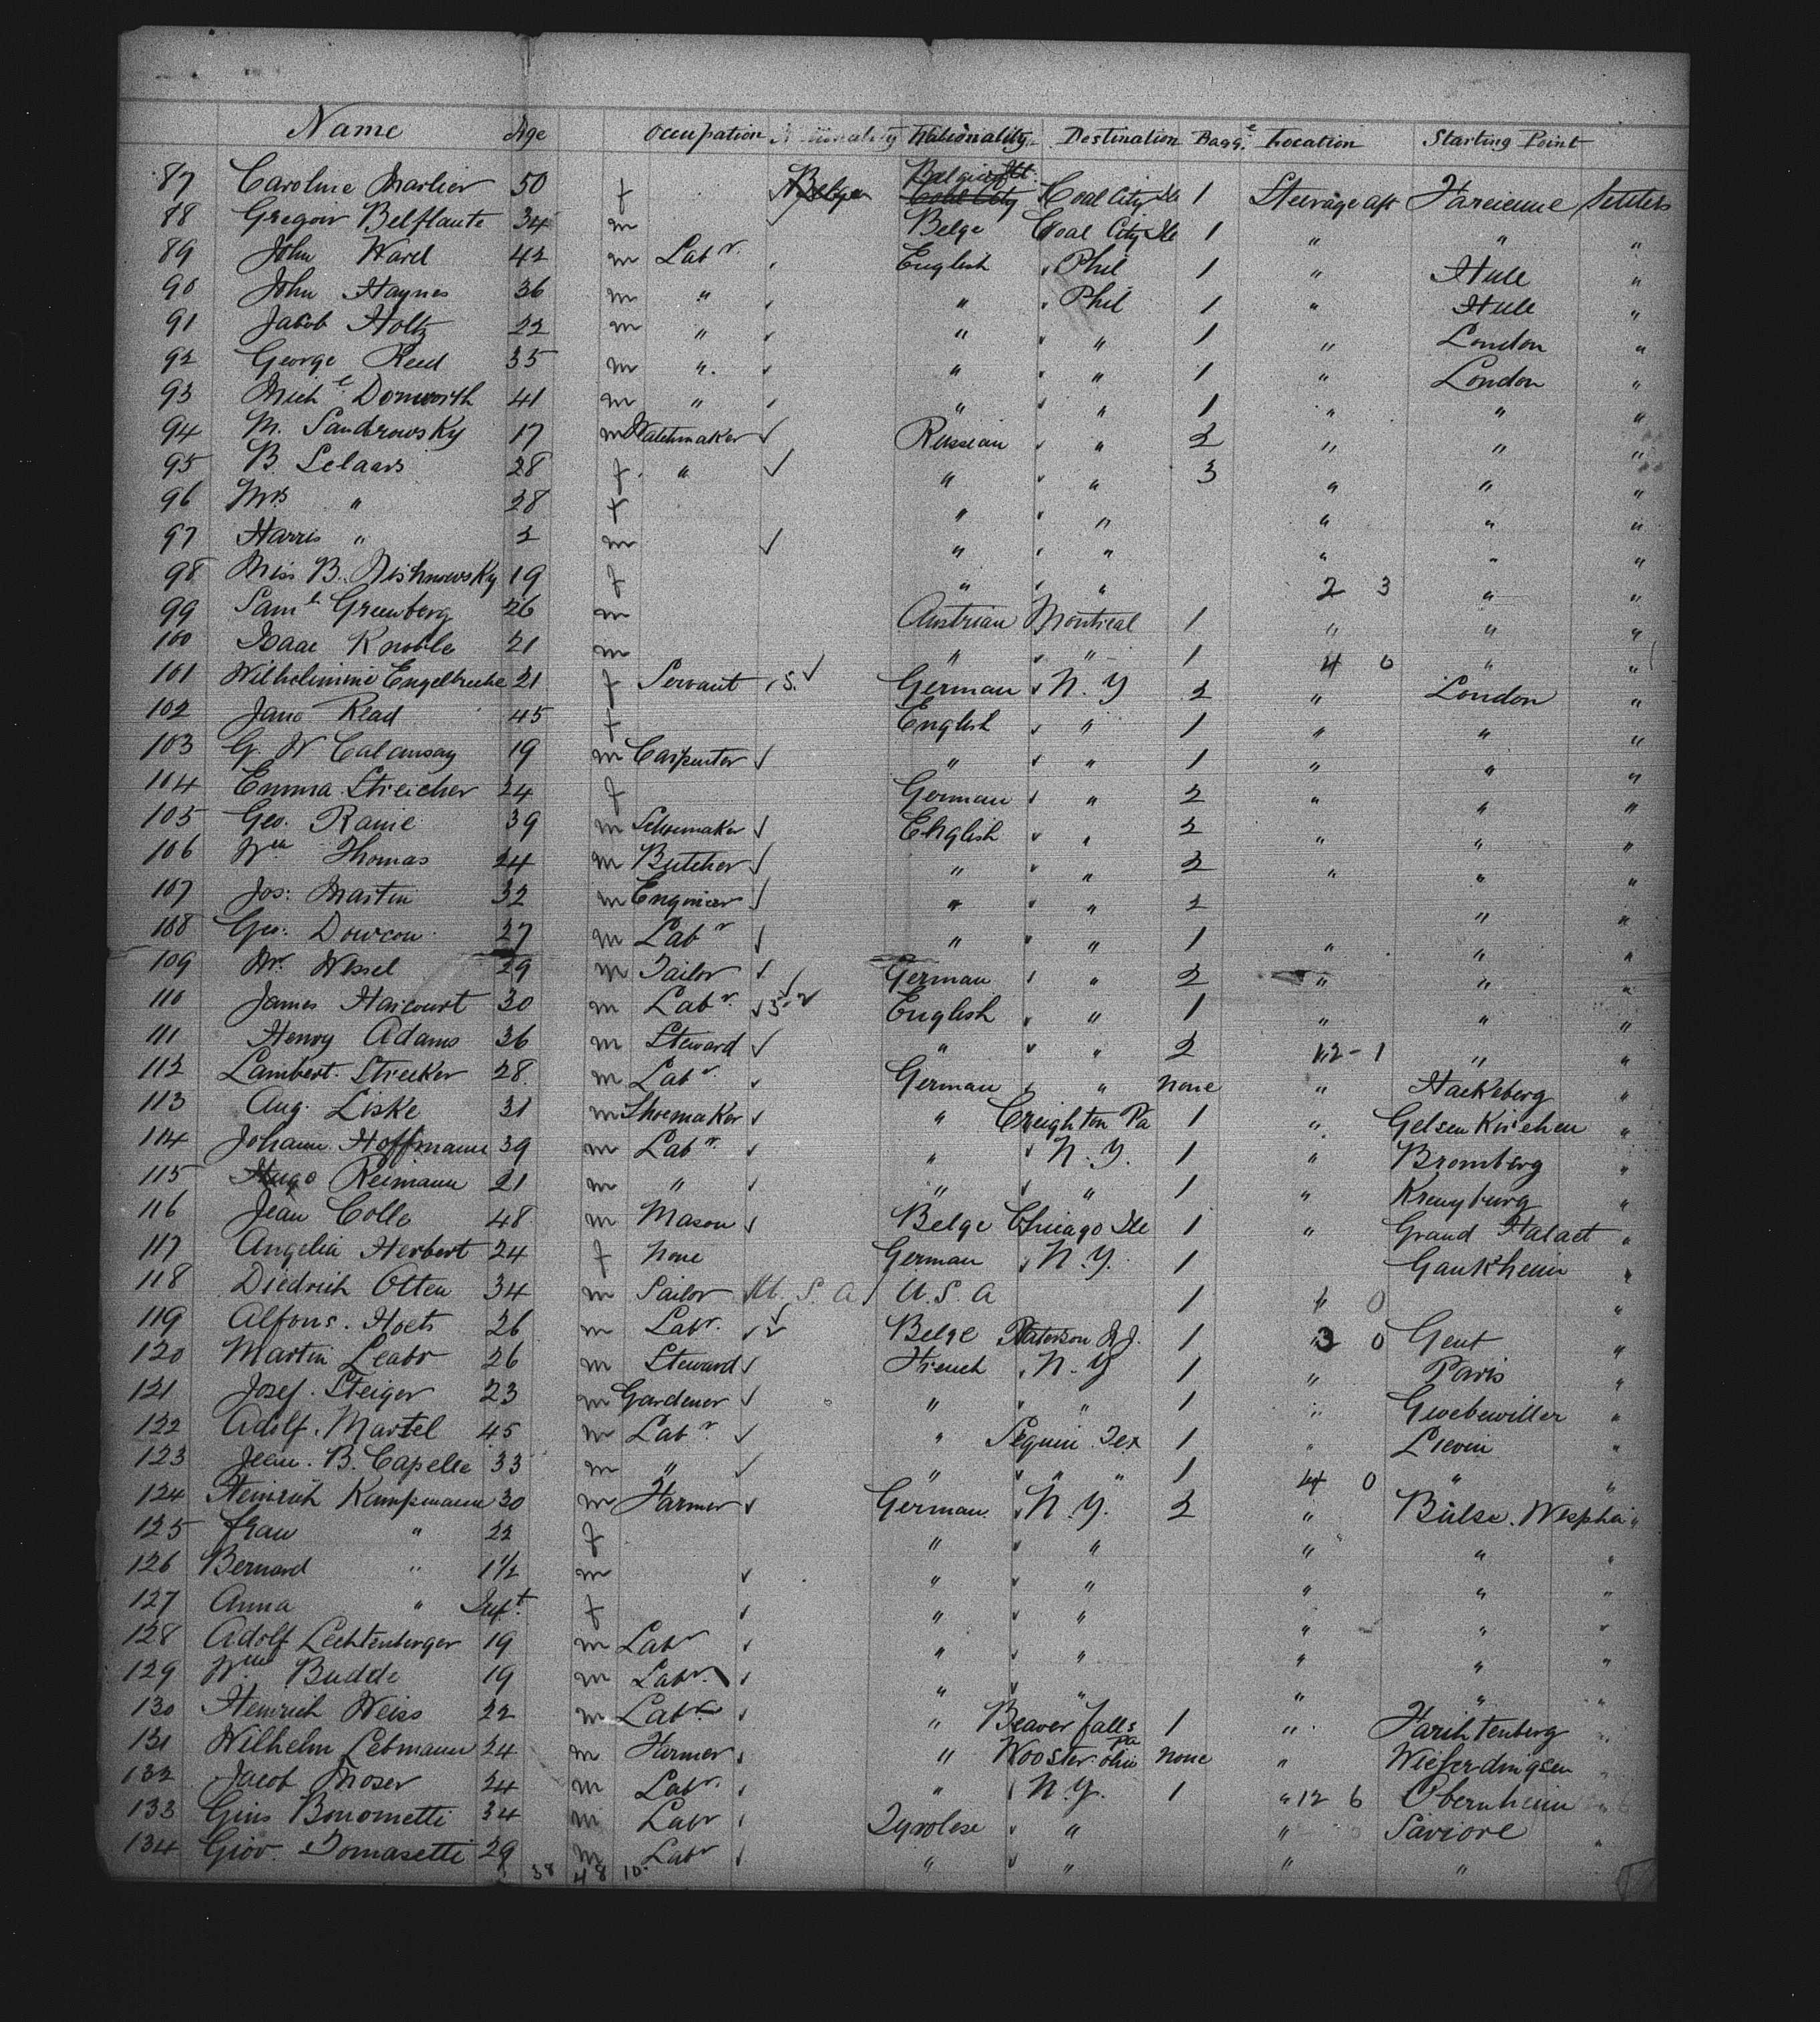 Name Age Occupation Nationality Nationality Destination Bagg.e Location Starting Point
87 Caroline Marlier 50 f Belge Coal City Coal City Ill 1 Steerage aft Farcienne Settlers
88 Gregoir Belflaute 34 m Belge Coal City Ill 1 " " "
89 John Ward 42 m Labr. English Phil 1 " Hull "
90 John Haynes 36 m " " Phil 1 " Hull "
91 Jacob Holtz 22 m " " " 1 " London "
92 George Reed 35 m " " " 1 " London "
93 Michl Donworth 41 m " " " 1 " " "
94 M. Sandrowsky 17 m Watchmaker Russian " 2 " " "
95 B. Selaars 28 f " " " 3 " " "
96 Mrs " 28 f " " " " "
97 Harris " 2 m " " " " "
98 Miss B. Nishnowsky 19 f " " 2 3 " "
99 Saml Greenberg 26 m Austrian Montreal 1 " " "
100 Isaac Knoble 21 m " " 1 4 0 " "
101 Wilhelmine 21 f Servant S. German N. Y 2 " London "
102 Jane Read 45 f English " 1 " " "
103 G. W Calamsay 19 m Carpenter " " 1 " " "
104 Emma Streicher 24 f German " 2 " " "
105 Geo. Rame 39 m Schoemaker English " 2 " " "
106 Wm Thomas 24 m Butcher " " 2 " " "
107 Jos: Martin 32 m Engineer " " 2 " "
108 Geo: Dowcon 27 m Labr " " 1 " " "
109 Wr. Wessel 29 m Tailor German " 2 " " "
110 James Harcourt 30 m Labr. English " 1 " " "
111 Henry Adams 36 m Steward " " 2 12-1 " "
112 Lambert Strecker 28 m Labr. German " none " Hackeberg "
113 Aug. Liske 31 m Shoemaker " Creighton Pa 1 " Gelsenkirchen "
114 Johann Hoffmann 39 m Labr. " N. Y. 1 " Bromberg "
115 Hugo Reimann 21 m " " " 1 " Kreuyburg "
116 Jean Colle 48 m Mason Belge Chicago Ill 1 " Grand Halaet "
117 Angelia Herbert 24 f None German N. Y. 1 Gaukheim "
118 Diedrich Otten 34 m Sailor U. S. A U. S. A 1 " 0 "
119 Alfons. Hoets 26 m Labr. Belge Paterson N J. 1 3 0 Gent "
120 Martin Leabr 26 m Steward French N. Y 1 " Paris "
121 Josef. Steiger 23 m Gardener " " 1 " Gwebewiller "
122 Adolf. Martel 45 m Labr. " Seguin Tex 1 " Lievin "
123 Jean. B. Capelle 33 m " " " " 1 4 0 " "
124 Heinrich Kampmann 30 m Farmer German N. Y. 2 " Bülse. Wespha "
125 Frau " 22 f " " " " "
126 Bernard " 1 1/2 m " " " " "
127 Anna " Inft. f " " " " "
128 Adolf Lechtenberger 19 m Labr " " " " "
129 Wm Budde 19 m Labr. " " " " "
130 Heinrich Weiss 22 m Labr " Beaver falls Pa 1 " Harihtenberg "
131 Wilhelm Lebmann 24 m Farmer " Wooster Ohio none " Wieferdingsen "
132 Jacob Moser 24 m Labr. " N. Y. 1 " 12 6 Obernheim "
133 Gius Bonometti 34 m Labr Tyrolese " " Saviore
134 Giov. Tomasetti 29 m Labr " " " " "
38 48 10